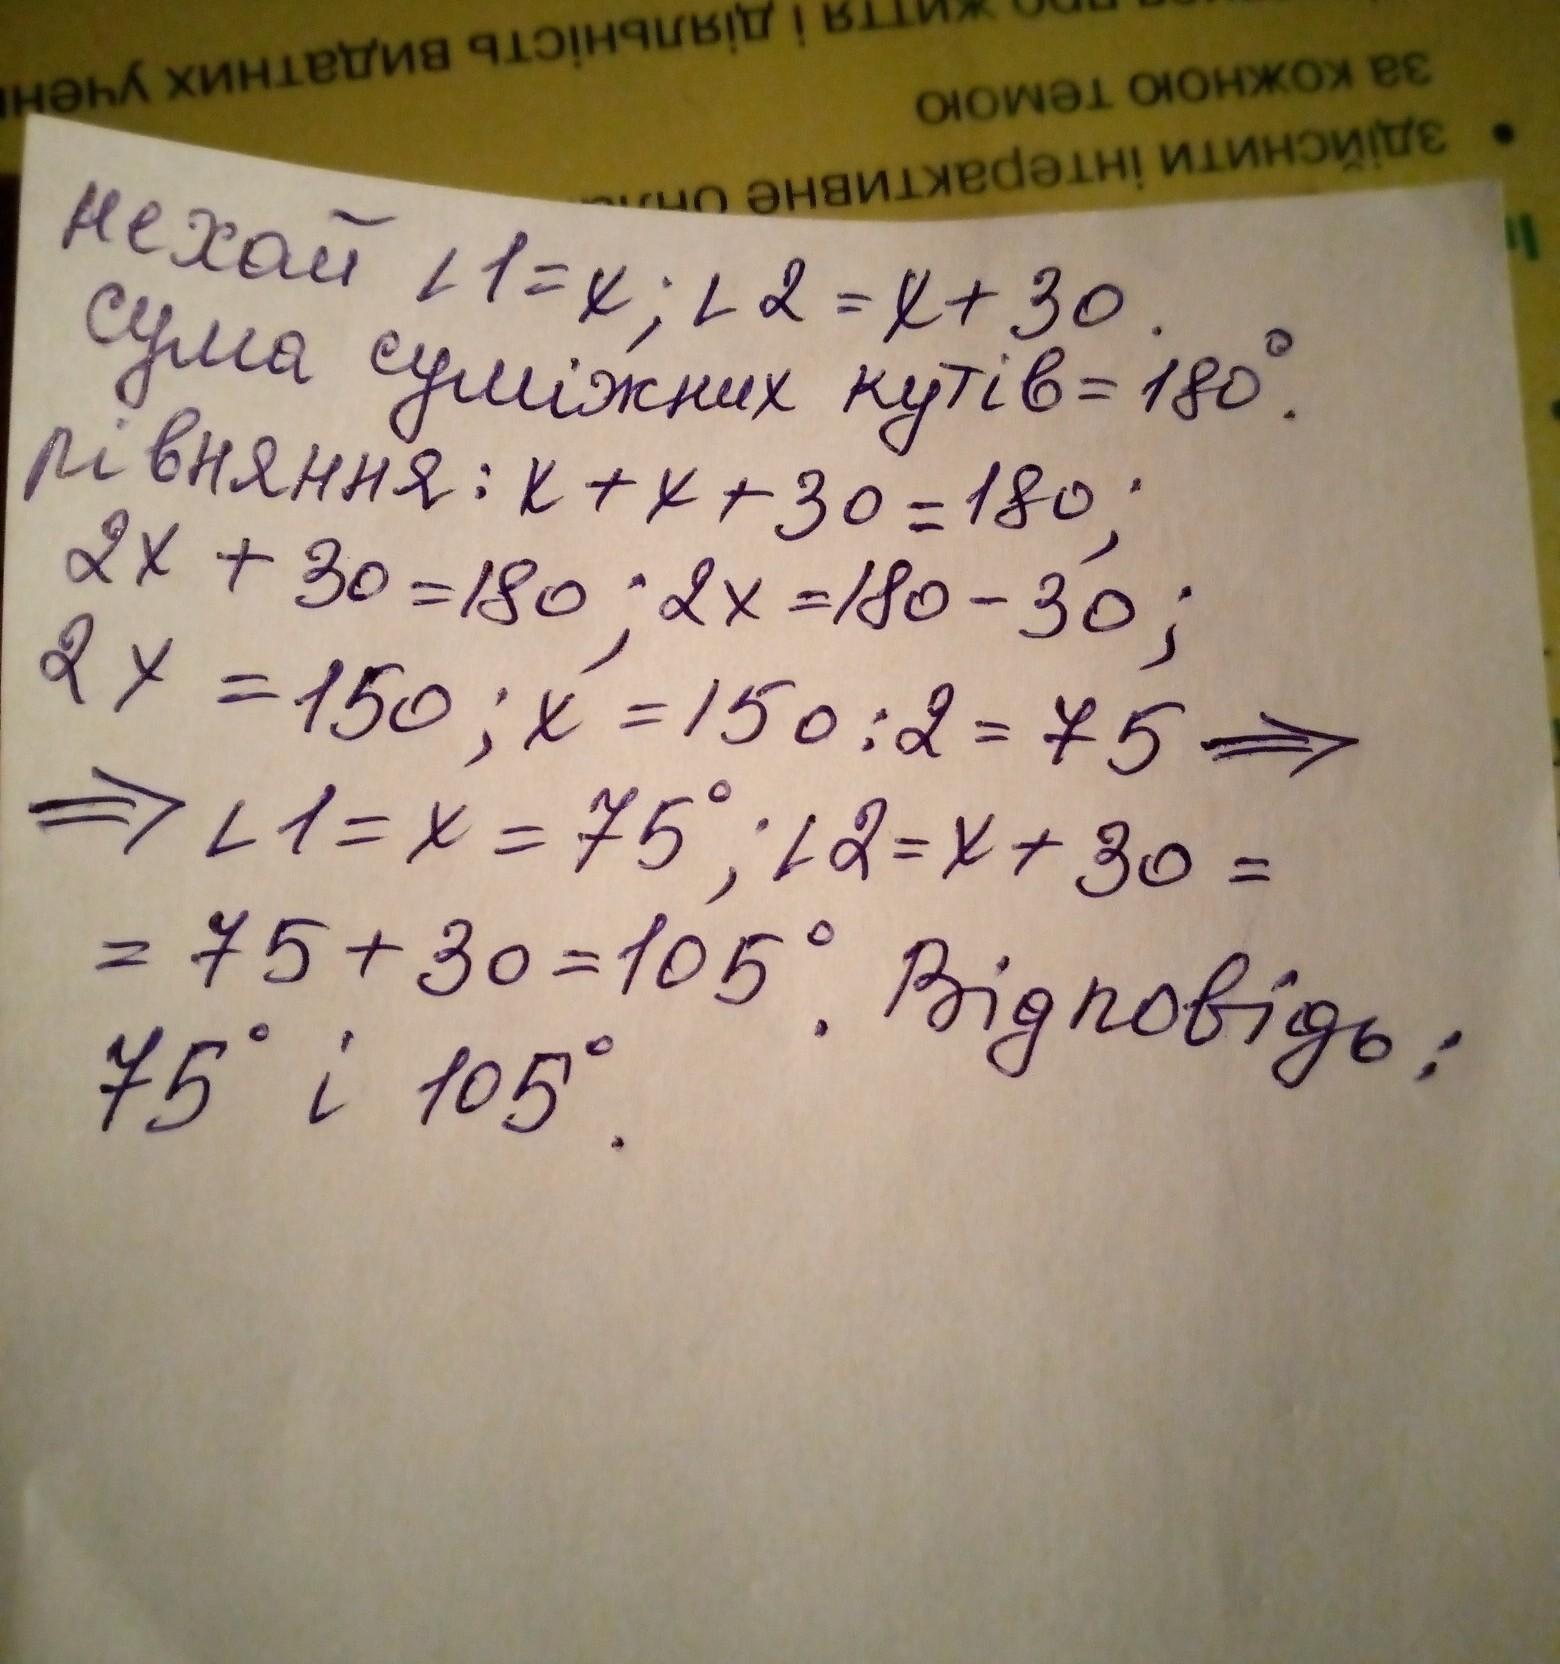 життя і діяльність видатних
за кожною темою
• здійснити інтерактивне
нехай ∠1=x; ∠2=x+30.
сума суміжних кутів=180°.
рівняння: x+x+30=180;
2x+30=180; 2x=180-30;
2x=150; x=150:2=75 ⇒
⇒ ∠1=x=75°; ∠2=x+30=
=75+30=105°. Відповідь:
75° і 105°.